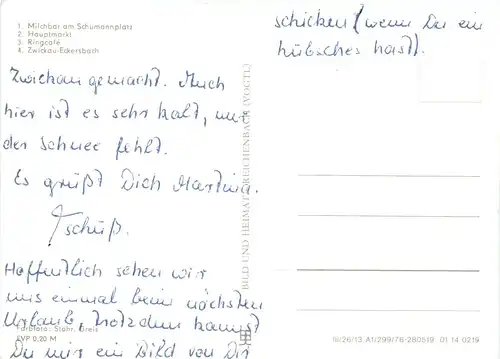 1. Milchbar am Schumannplatz
2. Hauptmarkt
3. Ringcafé
4. Zwickau-Eckersbach
Zwickau gemacht. Auch
hier ist es sehr kalt, nur
der Schnee fehlt.
Es grüßt Dich Martina.
Tschüß.
Hoffentlich sehen wir
uns einmal beim nächsten
Urlaub, trotzdem kannst
Du mir ein Bild von Dir
schicken (wenn Du ein
hübsches hast).
BILD UND HEIMAT REICHENBACH (VOGTL)
Farbfoto: Stohr, Greiz
EVP 0,20 M
III/26/13 A1/299/76-280519 01 14 0219